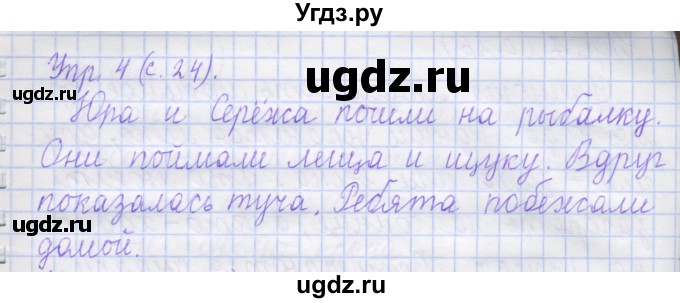 Угдз.ру
Упр. 4 (с. 24).
ugdz.ru
ugdz.ru
ugdz.ru
Юра и Серёжа пошли на рыбалку.
Они поймали леща и щуку. Вдруг
показалась туча. Ребята побежали
ugdz.ru
ugdz.ru
домой.
ugdz.ru